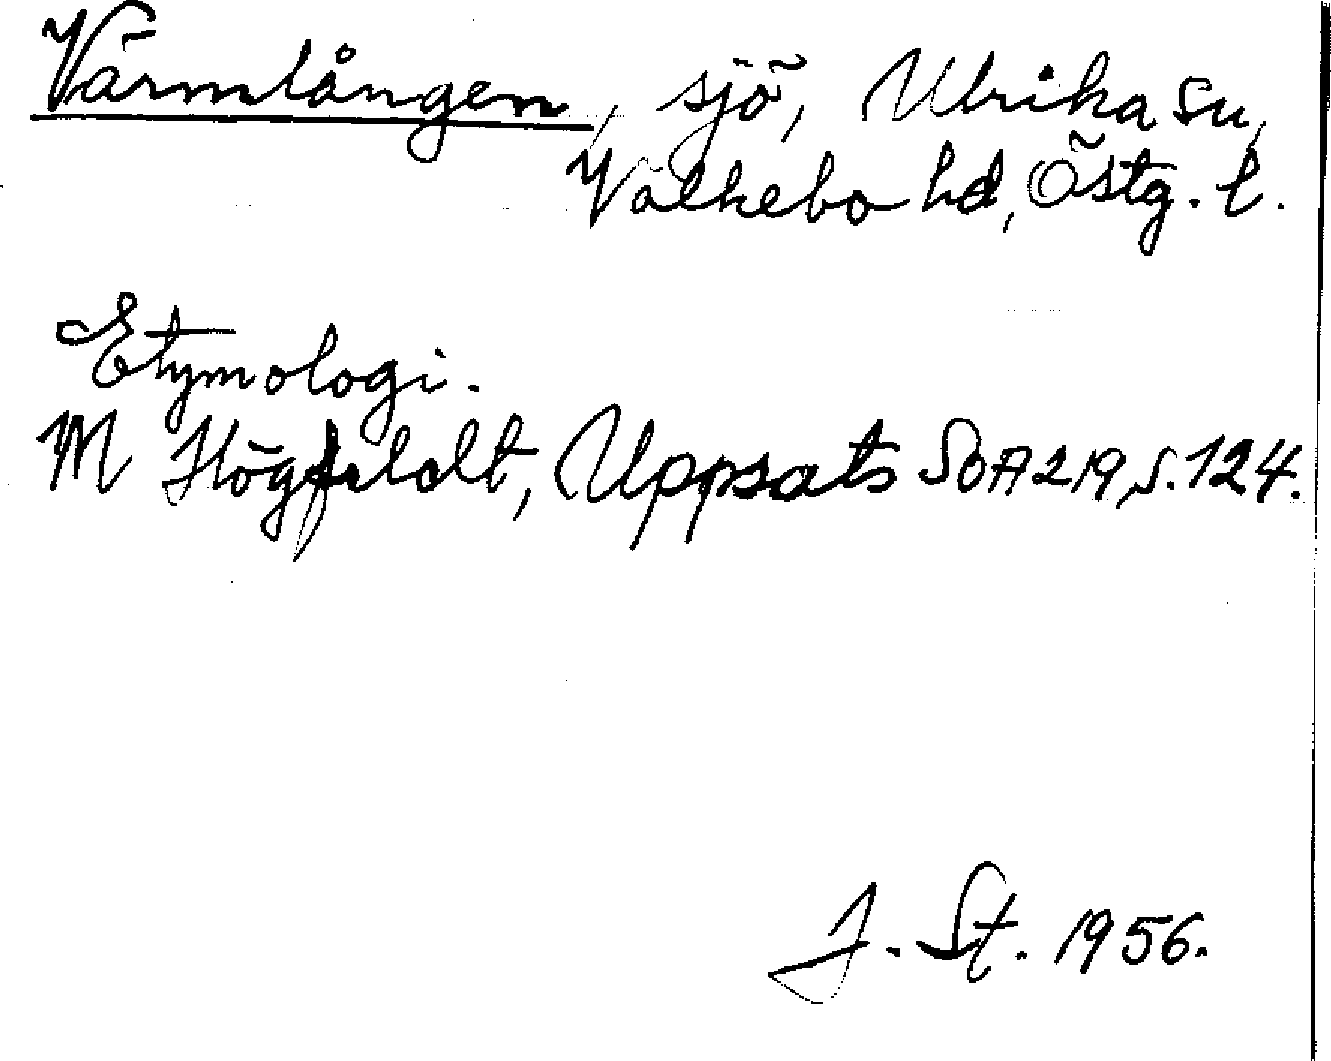 Värmlången, sjö, Ulrika sn,
Valkebo hd, Östg. l.
Etymologi.
M Högfeldt, Uppsats SOA 219, s. 124.
J. St. 1956.